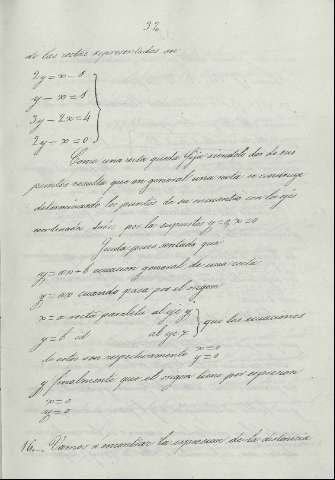 32
de las rectas representadas en
2y = x - 1
y - x = 1
3y - 2x = 4
2y - x = 0
Como una recta queda fija siendolo dos de sus
puntos resulta que en general una recta se construye
determinando los puntos de su encuentro con los ejes
coordenados por los supuestos y = 0, x = 0
Queda pues sentado que
y = ax + b ecuacion general de una recta
y = ax cuando pasa por el origen
x = a recta paralela al eje y
y = b id al eje x } que las ecuaciones
de estos son respectivamente x = 0
y = 0
y finalmente que el origen tiene por espresion
x = 0
y = 0
16.... Vamos a encontrar la espresion de la distancia